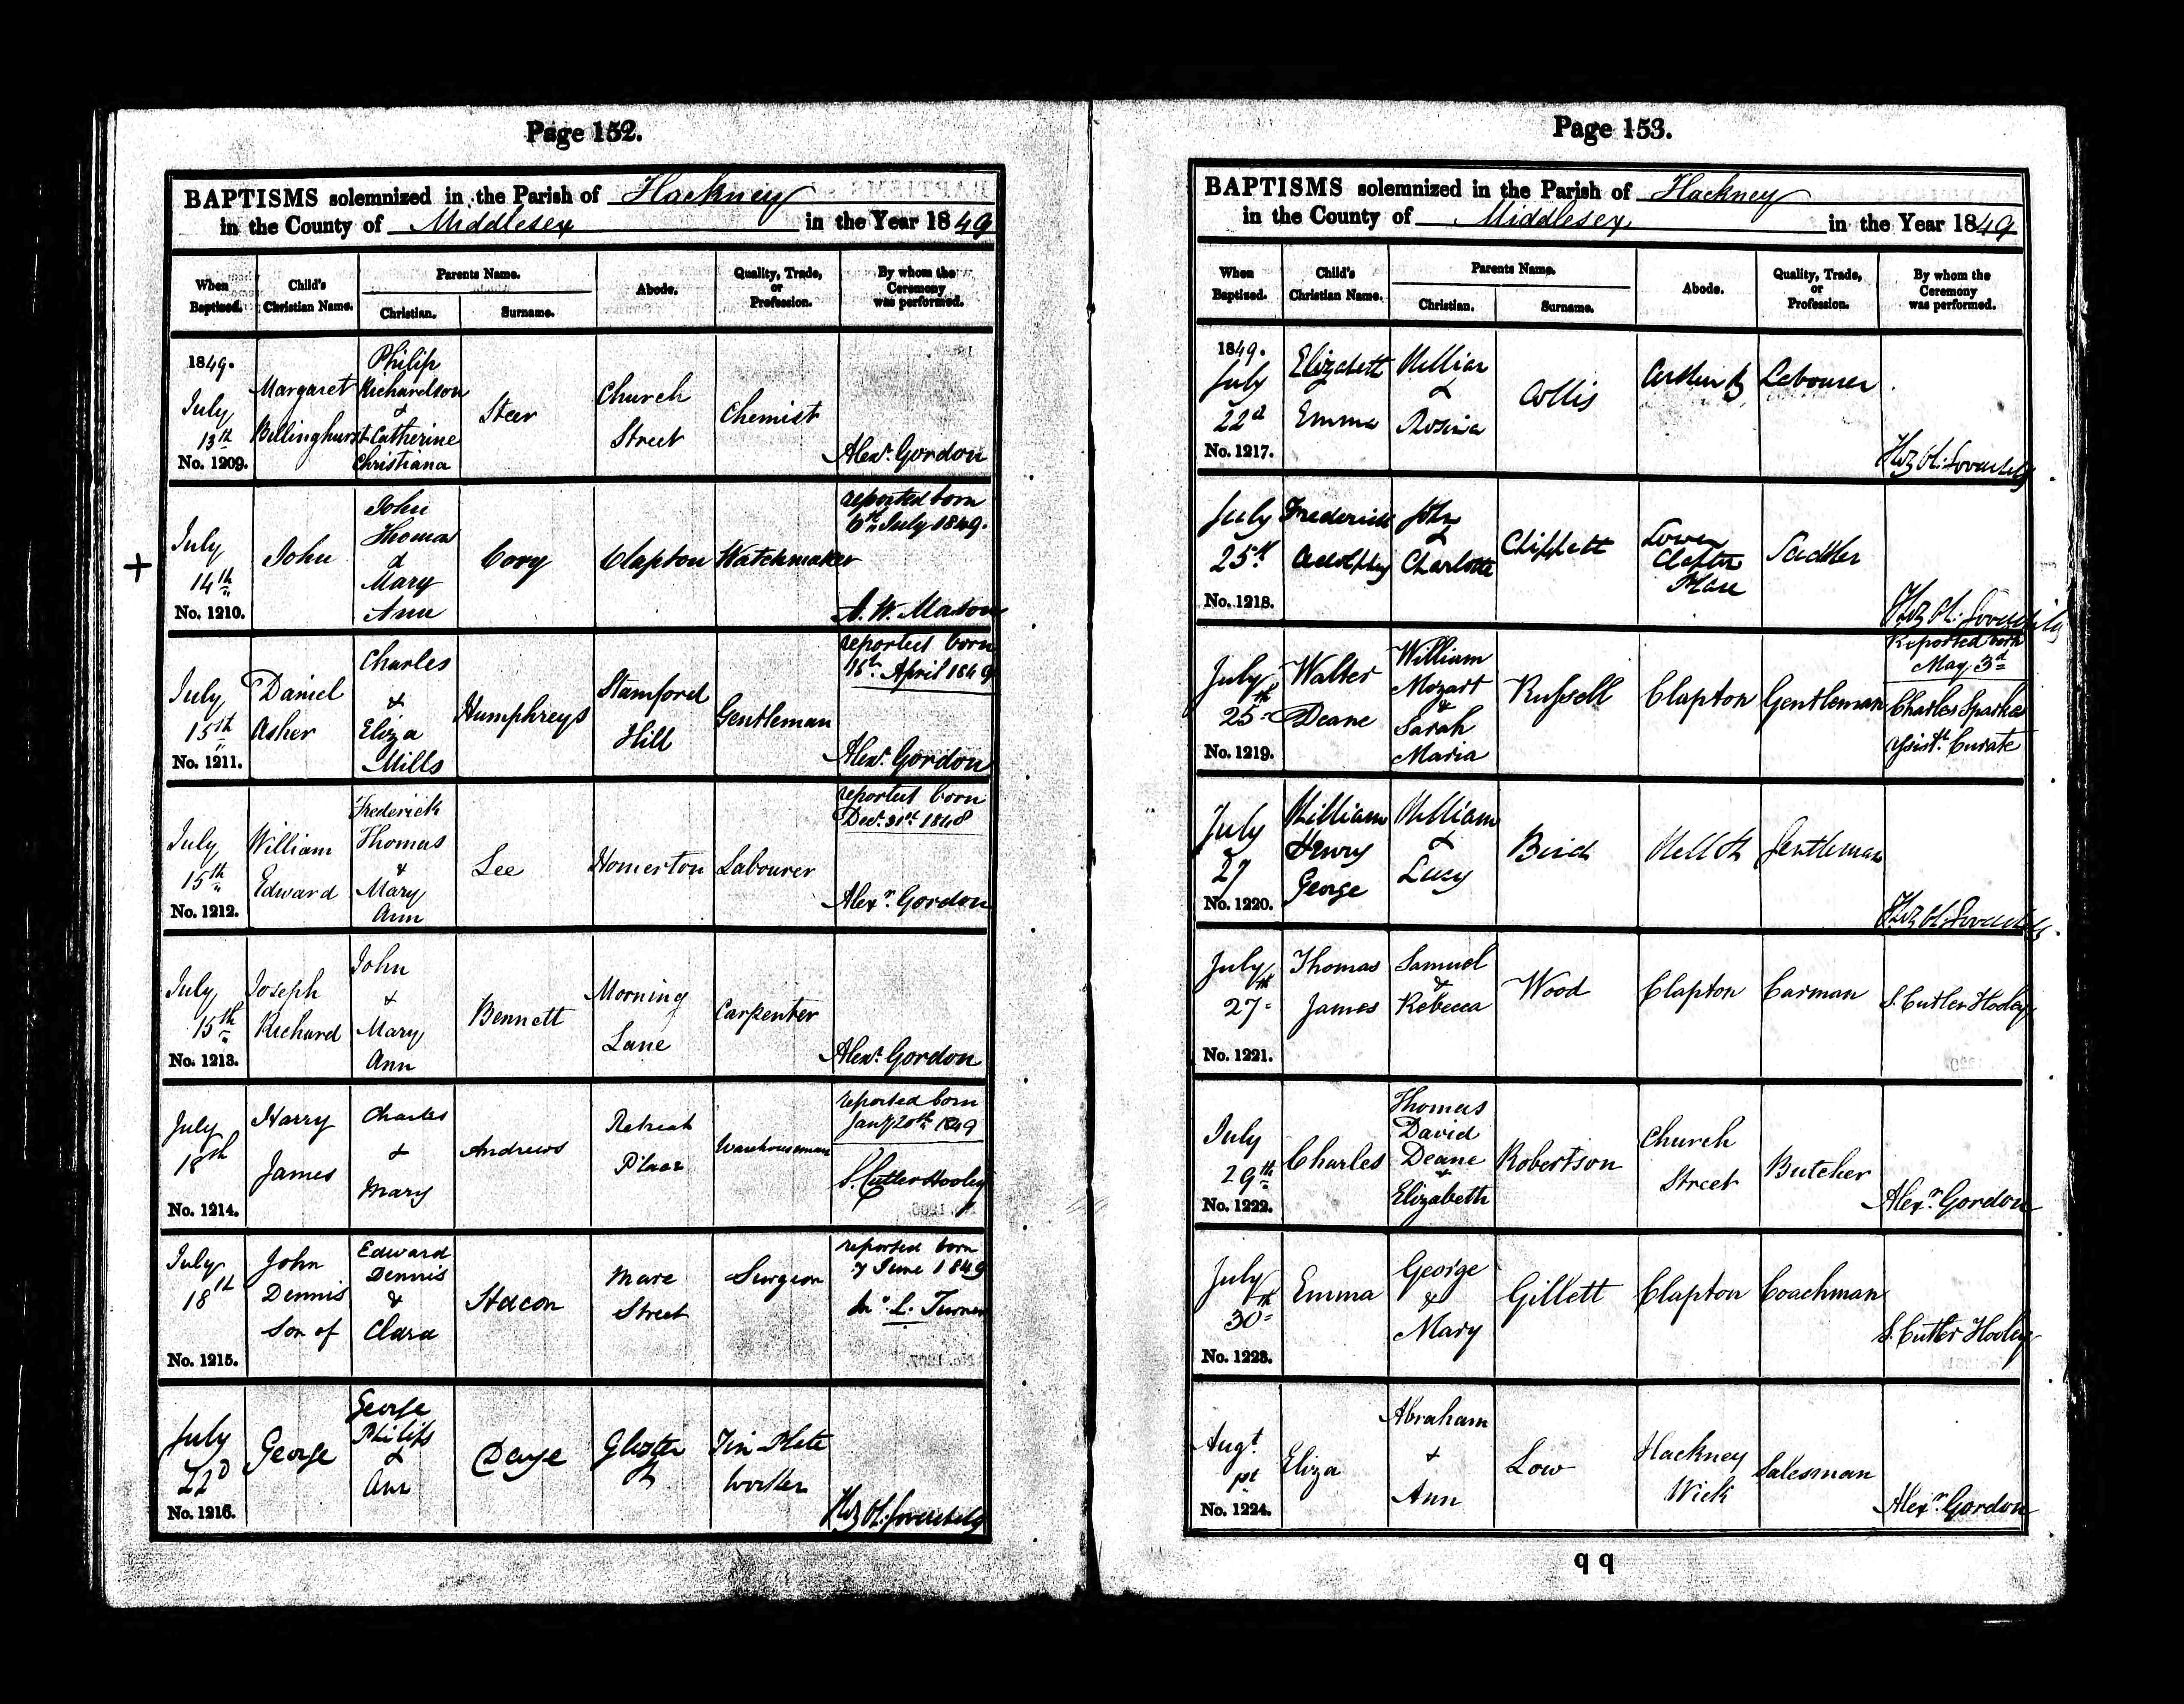 Page 152.
BAPTISMS solemnized in the Parish of Hackney
in the County of Middlesex in the Year 1849
When Baptized.
Child's Christian Name.
Parents Name.
Christian.
Surname.
Abode.
Quality, Trade, or Profession.
By whom the Ceremony was performed.
1849.
July
13th
No. 1209.
Margaret
Billinghurst
Philip
Richardson
&
Catherine
Christiana
Steer
Church
Street
Chemist
Alexr. Gordon
+
July
14th
No. 1210.
John
John
Thomas
&
Mary
Ann
Cory
Clapton
Watchmaker
reported born
6th July 1849.
A. W. Mason
July
15th
No. 1211.
Daniel
Asher
Charles
&
Eliza
Mills
Humphreys
Stamford
Hill
Gentleman
reported born
April 1849
Alexr. Gordon
July
15th
No. 1212.
William
Edward
Frederick
Thomas
&
Mary
Ann
Lee
Homerton
Labourer
reported born
Decr. 31st 1848
Alexr. Gordon
July
15th
No. 1213.
Joseph
Richard
John
&
Mary
Ann
Bennett
Morning
Lane
Carpenter
Alexr. Gordon
July
18th
No. 1214.
Harry
James
Charles
&
Mary
Andrews
Retreat
Place
Warehouseman
reported born
Jany 20th 1849
S. Cutler Hooley
July
18th
No. 1215.
John
Dennis
Son of
Edward
Dennis
&
Clara
Hacon
Mare
Street
Surgeon
reported born
7 June 1849
L. Turner
July
22d
No. 1216.
George
George
Philip
&
Ann
Daye
Gloster
Tin Plate
Worker
Page 153.
BAPTISMS solemnized in the Parish of Hackney
in the County of Middlesex in the Year 1849
When Baptized.
Child's Christian Name.
Parents Name.
Christian.
Surname.
Abode.
Quality, Trade, or Profession.
By whom the Ceremony was performed.
1849.
July
22d
No. 1217.
Elizabeth
Emma
William
&
Rosina
Collis
Labourer
July
25th
No. 1218.
Frederick
Adolphus
John
&
Charlotte
Chippett
Lower
Clapton
Place
Saddler
July
25th
No. 1219.
Walter
Deane
William
Mozart
&
Sarah
Maria
Russell
Clapton
Gentleman
Reported born
May 3d
Charles Sparkes
Assistt. Curate
July
27
No. 1220.
William
Henry
George
William
&
Lucy
Bird
Well St
Gentleman
July
27th
No. 1221.
Thomas
James
Samuel
&
Rebecca
Wood
Clapton
Carman
S. Cutler Hooley
July
29th
No. 1222.
Charles
Thomas
David
Deane
&
Elizabeth
Robertson
Church
Street
Butcher
Alexr. Gordon
July
30th
No. 1223.
Emma
George
&
Mary
Gillett
Clapton
Coachman
S. Cutler Hooley
Augt.
1st
No. 1224.
Eliza
Abraham
&
Ann
Low
Hackney
Wick
Salesman
Alexr. Gordon